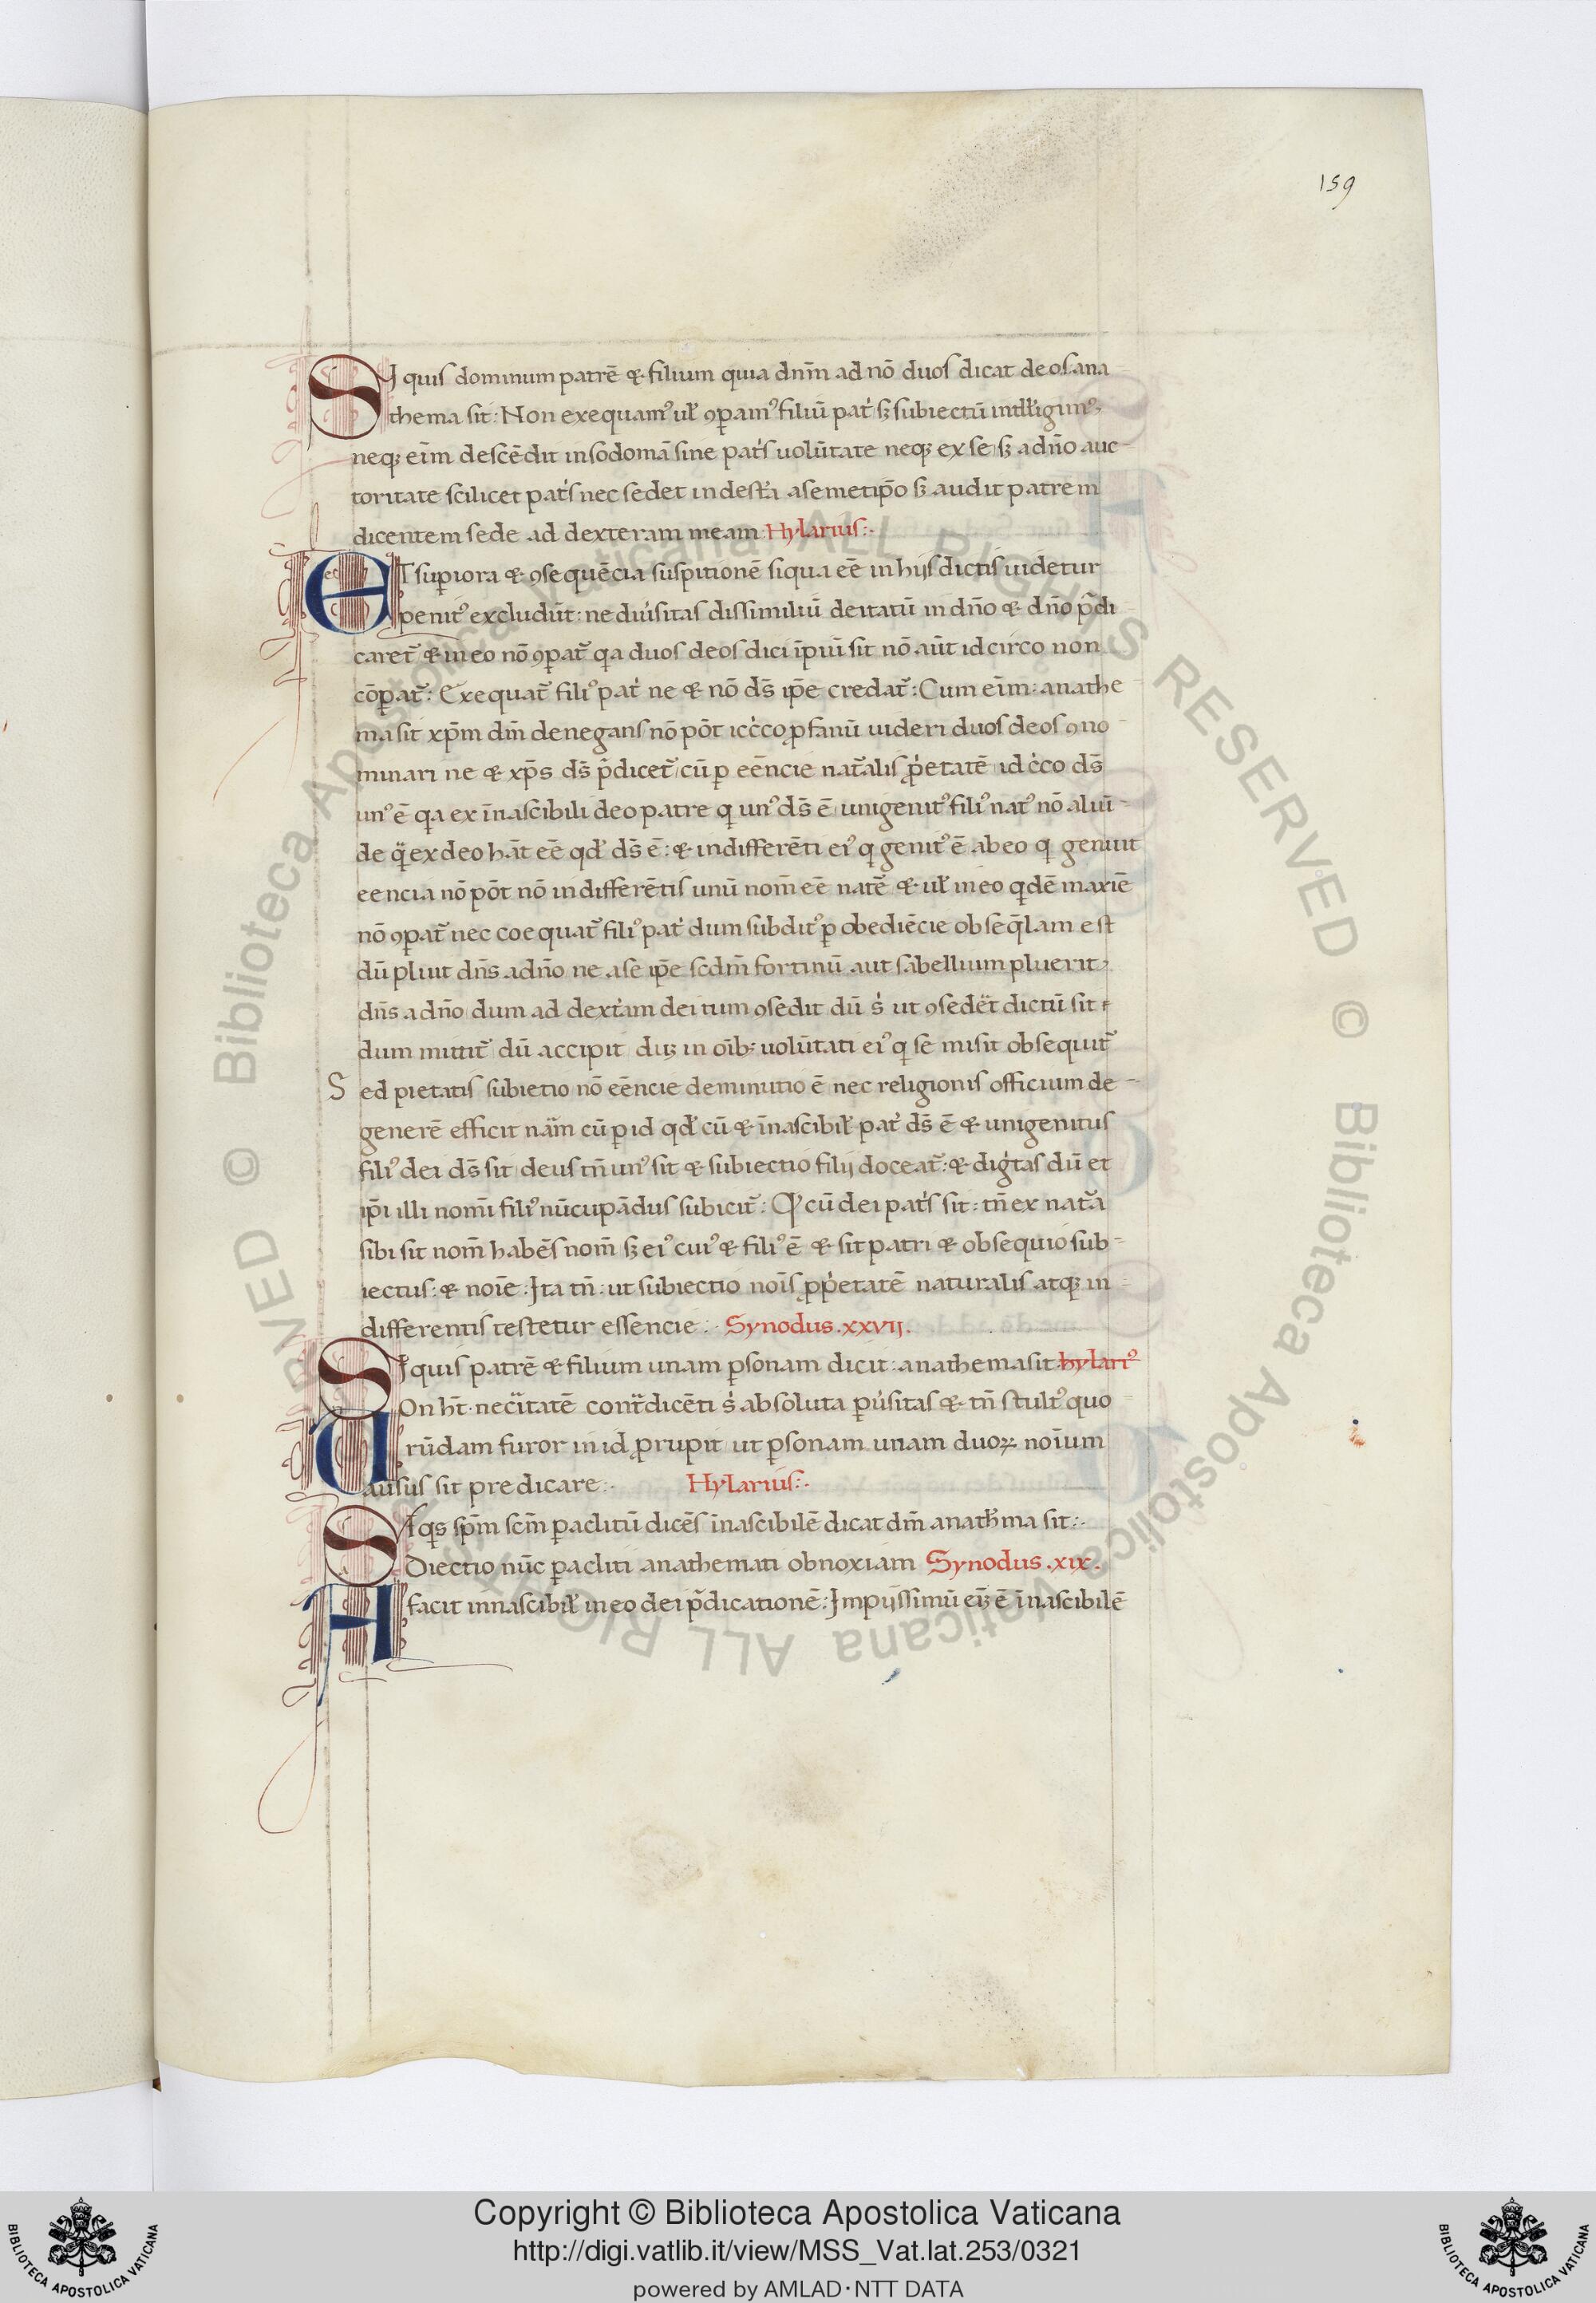 159
SI quis dominum patrē & filium quia dnm̄ ad nō duos dicat deos ana
thema sit: Non exequamꝰ ul̓ ꝯꝑamꝰ filiū patͥ sꝫ subiectū intell̓igimꝰ,
neqꝫ eīm descēdit in sodomā sine patͥs uolūtate neqꝫ ex se sꝫ a dño auc-
toritate scilicet patͥs nec sedet in dextͣa a semetip̄o sꝫ audit patrem
dicentem sede ad dexteram meam: Hylarius:·
ET suꝑiora & ꝯsequēcia suspitionē siqua eē in hijs dictis uidetur
penitꝰ excludūt: ne diuͥsitas dissimiliū deitatū in dño & dño p̄di
caret᷑ & in eo nō ꝯꝑat᷑ qa duos deos dici īpiū sit nō aūt idcirco non
cōꝑat᷑: Exequat᷑ filiꝰ patͥ ne & nō ds̄ ip̄e credat᷑: Cum eīm: anathe
ma sit xp̄m dm̄ denegans nō pōt iccͥco ꝓfanū uideri duos deos ꝯno-
minari ne & xp̄s ds̄ p̄dicet᷑ cū ꝑ eēncie nat᷑alis ꝓͥetatē idcͥco ds̄
unꝰ ē qa ex īnascibili deo patre q unꝰ ds̄ ē unigenitꝰ filiꝰ natꝰ nō aliū-
de qͣ ex deo hāt eē qd̓ ds̄ ē: & indifferēti eiꝰ q genitꝰ ē ab eo q genuit
eencia nō pōt nō indifferētis unū nom̄ eē nat᷑e & ul̓ in eo qdē maxīe
nō ꝯꝑat᷑ nec coequat᷑ filiꝰ patͥ dum subditꝰ ꝑ obediēcie obseq̄lam est
dū pluit dn̄s a dño ne a se ip̄e scdm̄ fortinū aut sabellium pluerit,
dn̄s a dño dum ad dextͣam dei tum ꝯsedit dū sͥ ut ꝯsedēt dictū sit
dum mittit᷑ dū accipit duꝫ in oībꝫ uolūtati eiꝰ q se misit obsequit᷑
Sed pietatis subietio nō eēncie deminutio ē nec religionis officium de-
generē efficit nāͣm cū ꝑ id qd̓ cū & īnascibil̓ patͥ ds̄ ē & unigenitus
filiꝰ dei ds̄ sit deus tn̄ unꝰ sit & subiectio filij doceat᷑: & digͥtas dū et
ip̄i illi nom̄i filiꝰ nūcupādus subicit᷑: Qͥ cū dei patͥs sit: tn̄ ex nat᷑a
sibi sit nom̄ habēs nom̄ sꝫ eiꝰ cuiꝰ & filiꝰ ē & sit patri & obsequio sub-
iectus: & noīe: Ita tn̄: ut subiectio noīs ꝓpͥetatē naturalis atqꝫ in-
differentis testetur essencie:· Synodus .xxvij.
SI quis patrē & filium unam ꝑsonam dicit: anathema sit: hylariꝰ
On hꝉ neciͣtatē contͣdicēti sͥ absoluta ꝑuͥsitas & tn̄ stultꝰ quo
rūdam furor in id ꝓrupit ut ꝑsonam unam duoꝝ noīum
ausus sit predicare:· Hylarius:·
SI qs sp̄m scm̄ ꝑaclitū dicēs īnascibilē dicat dm̄ anath̄ma sit:·
Diectio nūc ꝑacliti anathemati obnoxiam Synodus .xix.
A facit innascibil̓ in eo dei p̄dicationē: Impijssimū eīꝫ ē īnascibilē
© Biblioteca Apostolica Vaticana ALL RIGHTS RESERVED
Copyright © Biblioteca Apostolica Vaticana
http://digi.vatlib.it/view/MSS_Vat.lat.253/0321
powered by AMLAD·NTT DATA
BIBLIOTECA APOSTOLICA VATICANA
BIBLIOTECA APOSTOLICA VATICANA